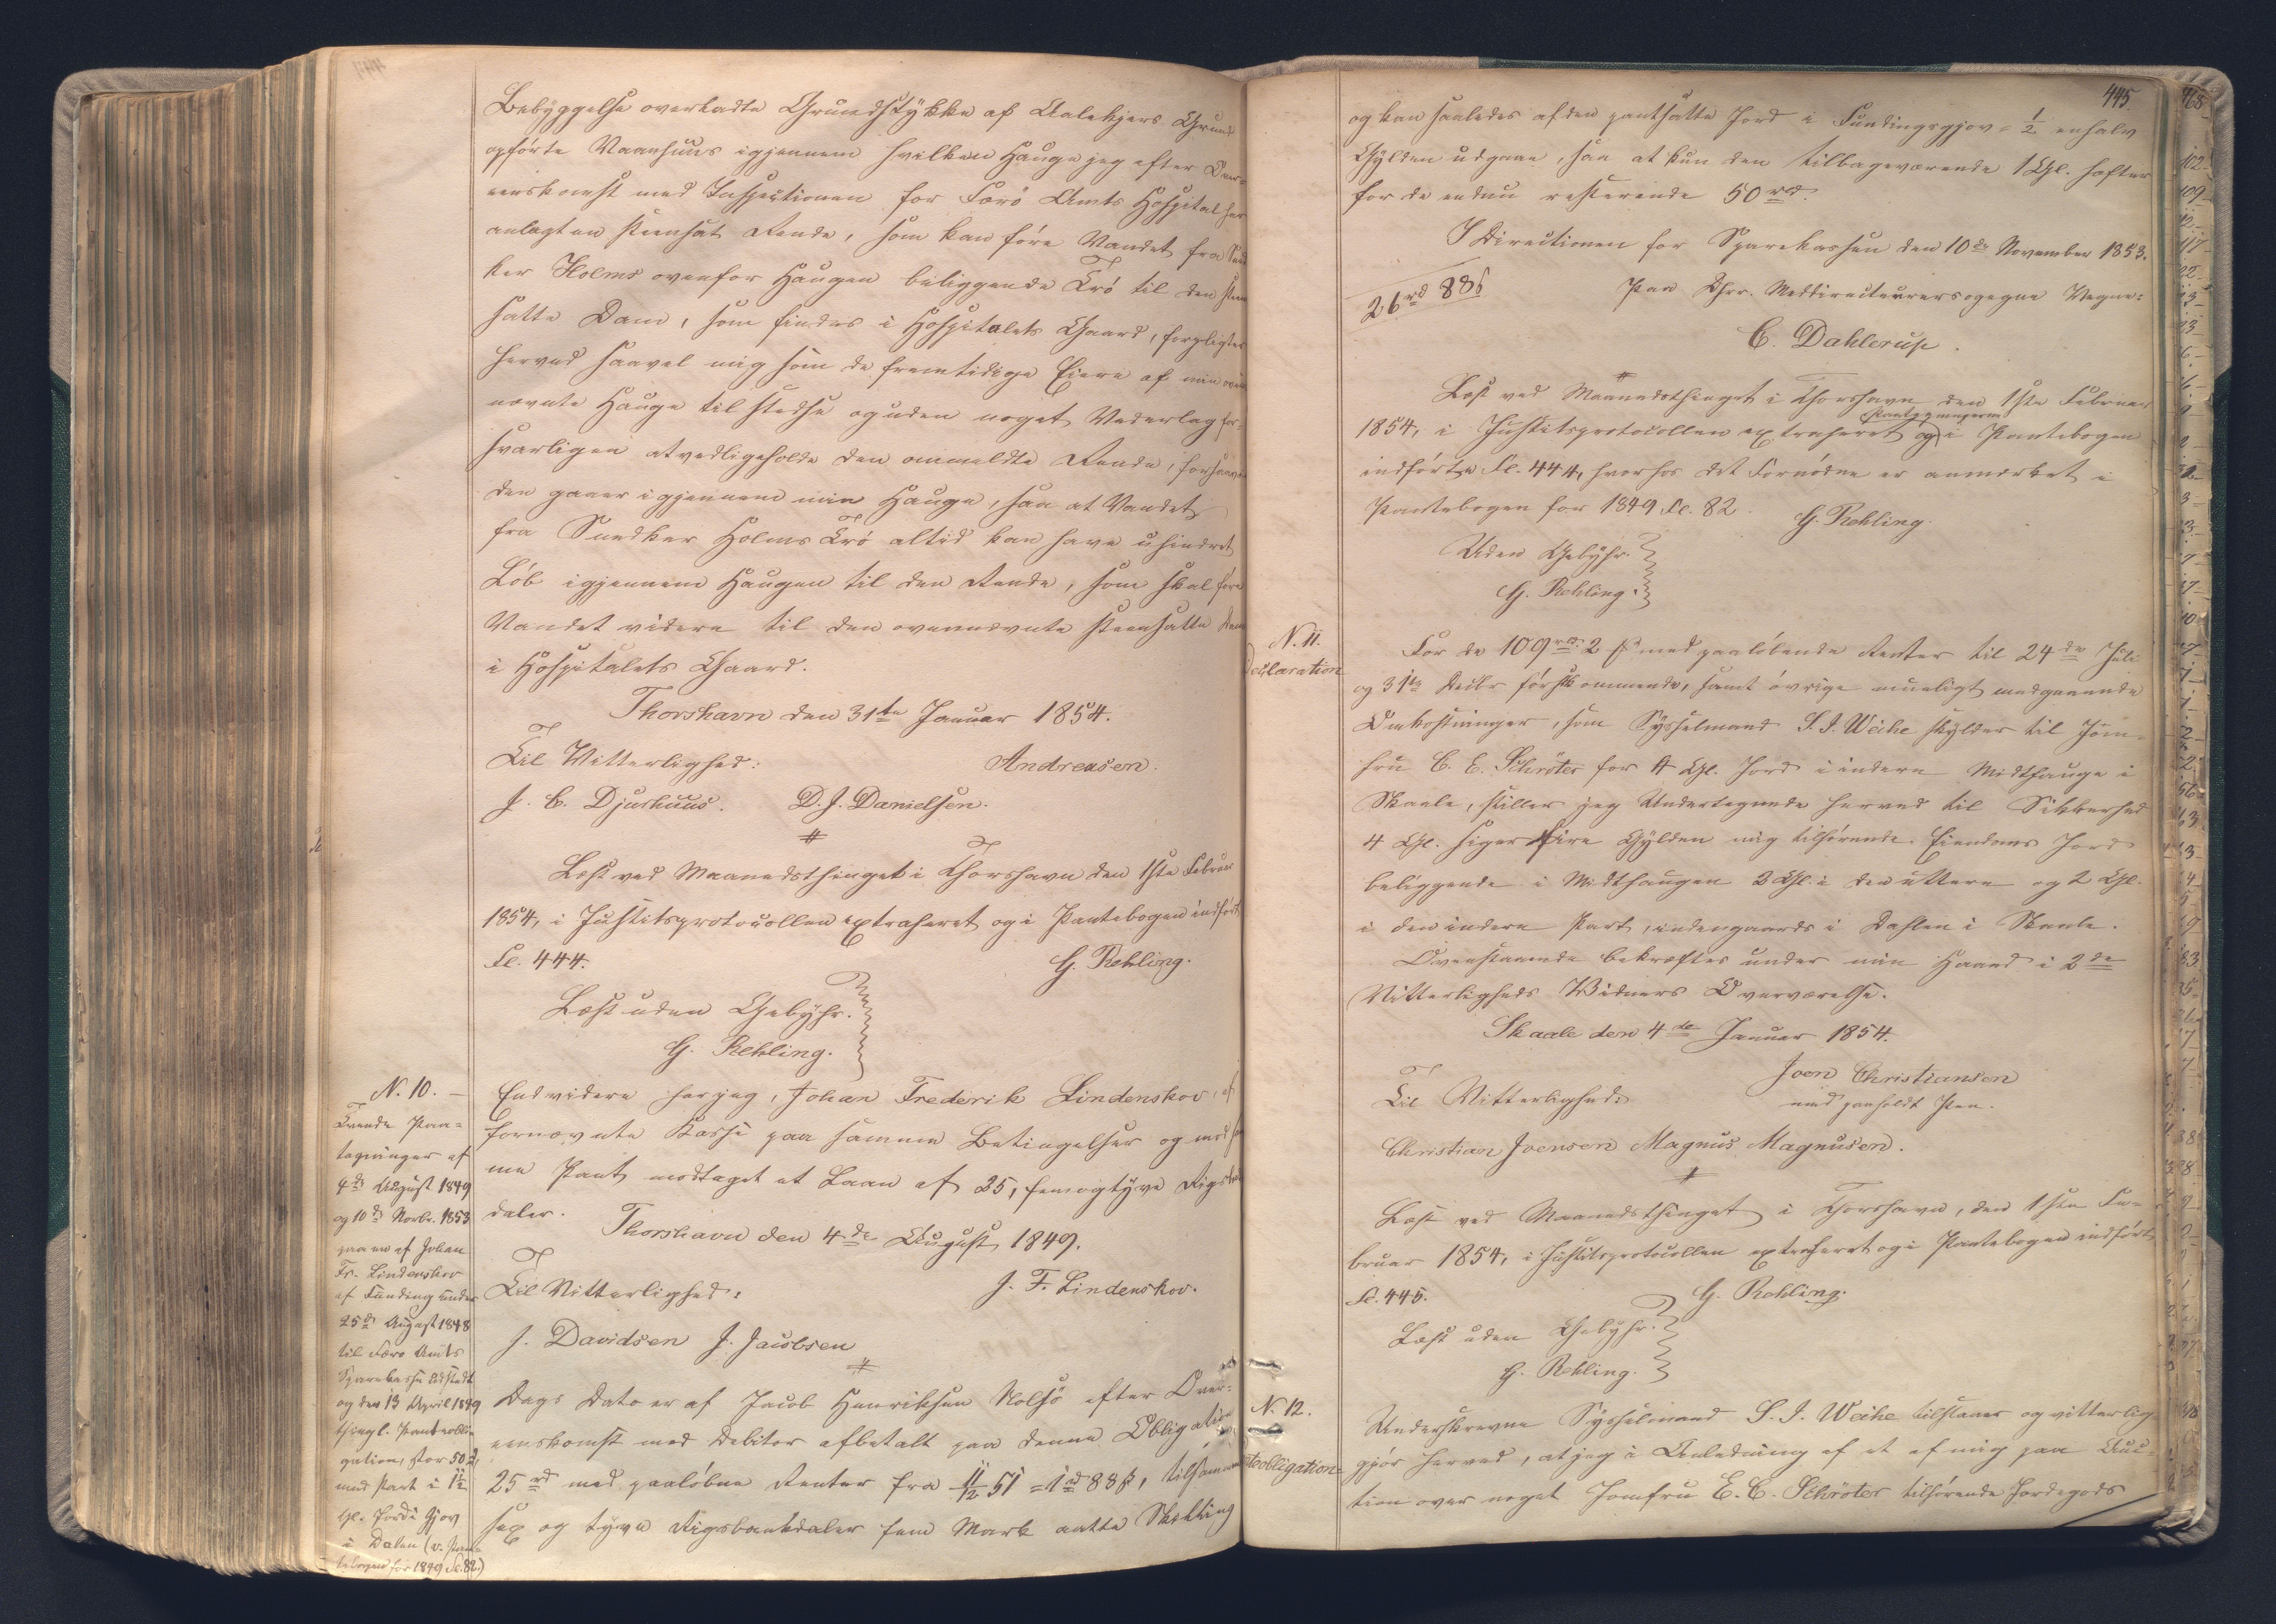 Bebyggelse overladte Grundstykke af Aalekjers Grund
opförte Vaanhuus igjennem hvilken Hauge jeg efter Over-
eenskomst med Inspectionen for Færö Amts Hospital har
anlagt en steensat Rende, som kan före Vandet fra Sned
ker Holms ovenfor Haugen beliggende Trö til den steen
satte Dam, som findes i Hospitalets Gaard, forpligter
herved saavel mig som de fremtidige Eiere af min oven
nævnte Hauge til stedse og uden noget Vederlag for-
svarligen at vedligeholde den ommeldte Rende, forsaavidt
den gaaer igjennem min Hauge, saa at Vandet
fra Snedker Holms Trö altid kan have uhindret
Löb igjennem Haugen til den Rende, som skal före
Vandet videre til den ovennævnte steensatte Dam
i Hospitalets Gaard.
Thorshavn den 31te Januar 1854.
Til Vitterlighed: Andreasen.
J. C. Djurhuus. D. J. Danielsen.
Læst ved Maanedsthinget i Thorshavn den 1ste Februar
1854, i Justitsprotocollen extraheret og i Pantebogen indfört
Fol. 444. G. Rehling.
Læst uden Gebyhr.
G. Rehling.
N. 10.
Tvende Paa-
tegninger af
4de August 1849
og 10de Novbr. 1853
paa en af Johan
Fr. Lindenskov
af Funding under
25de August 1848
til Færö Amts
Sparekasse udstedt
og den 13 April 1849
thingl. Panteobli-
gation, stor 50 rd,
med Pant i 1½
Gl. Jord i Gjov
i Dalen (v. Pan-
tebogen for 1849 Fol. 82.)
Endvidere har jeg, Johan Frederik Lindenskov, af
fornævnte Kasse paa samme Betingelser og mod sam
me Pant modtaget et Laan af 25, femogtyve Rigsbank
daler.
Thorshavn den 4de August 1849.
Til Vitterlighed: J. F. Lindenskov.
J. Davidsen J. Jacobsen
Dags Dato er af Jacob Henriksen Nolsö efter Over-
eenskomst med Debitor afbetalt paa denne Obligation
25 rd med paalöbne Renter fra 11/12 51 = 1 rd 88 ß, tilsammen
sex og tyve Rigsbankdaler fem Mark aatte Skilling
445.
og kan saaledes af den pantsatte Jord i Fundingsgjov = ½ en halv
Gylden udgaae, saa at kun den tilbageværende 1 Gl. hefter
for de endnu resterende 50 rd.
I Directionen for Sparekassen den 10de November 1853.
26 rd 88 ß Paa Dhrr. Meddirecteurers og egne Vegne:
C. Dahlerup.
Læst ved Maanedsthinget i Thorshavn den 1ste Februar
1854, i Justitsprotocollen extraheret og i Pantebogen
indförte Fol. 444, hvorhos det Fornödne er anmærket i
Pantebogen for 1849 Fol. 82. G. Rehling.
Uden Gebyhr.
G. Rehling.
N. 11.
Declaration
For de 109 rd. 2 ß med paalöbende Renter til 24de Juli
og 31te Decbr förstkommende, samt övrige mueligt medgaaende
Omkostninger, som Sysselmand S. J. Weihe skylder til Jom-
fru C. E. Schröter for 4 Gl. Jord i indere Midthauge i
Skaale, stiller jeg Undertegnede herved til Sikkerhed
4 Gl. siger fire Gylden mig tilhörende Eiendoms Jord
beliggende i Midthaugen 2 Gl. i den uttere og 2 Gl.
i den indere Part, indengaards i Dahlen i Skaale.
Ovenstaaende bekræftes under min Haand i 2de
Vitterligheds Vidners Overværelse.
Skaale den 4de Januar 1854.
Joen Christiansen
Til Vitterlighed: med paaholdt Pen.
Christian Joensen Magnus Magnusen.
Læst ved Maanedsthinget i Thorshavn, den 1ste Fe-
bruar 1854, i Justitsprotocollen extraheret og i Pantebogen indfört
Fol. 445. G. Rehling.
Læst uden Gebyhr.
G. Rehling.
N. 12.
Underskrevne Sysselmand S. J. Weihe tilstaaer og vitterlig
gjör herved, at jeg i Anledning af et af mig paa Auc-
tion over noget Jomfru E. C. Schröter tilhörende Jordegods